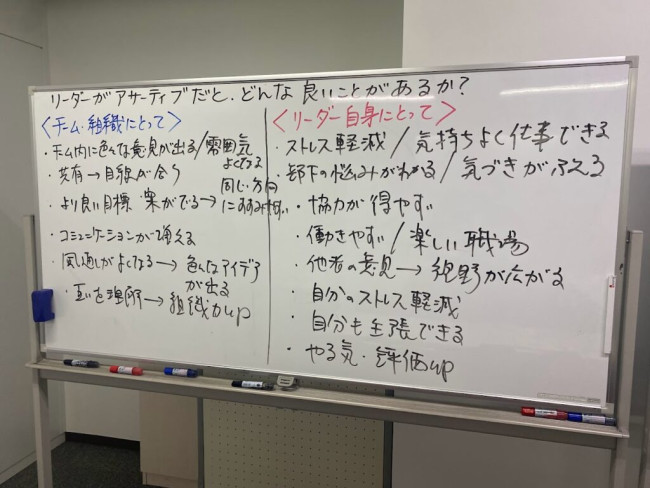 リーダーがアサーティブだと、どんな良いことがあるか?
〈チーム・組織にとって〉
・チーム内に色んな意見が出る/雰囲気よくなる
・共有→目線が合う
・より良い目標・案がでる→同じ方向にすすみやすい
・コミュニケーションが増える
・風通しがよくなる→色んなアイデアが出る
・互いを理解→組織力up
〈リーダー自身にとって〉
・ストレス軽減/気持ちよく仕事できる
・部下の悩みがわかる/気づきがふえる
・協力が得やすい
・働きやすい/楽しい職場
・他者の意見→視野が広がる
・自分のストレス軽減
・自分も主張できる
・やる気・評価up